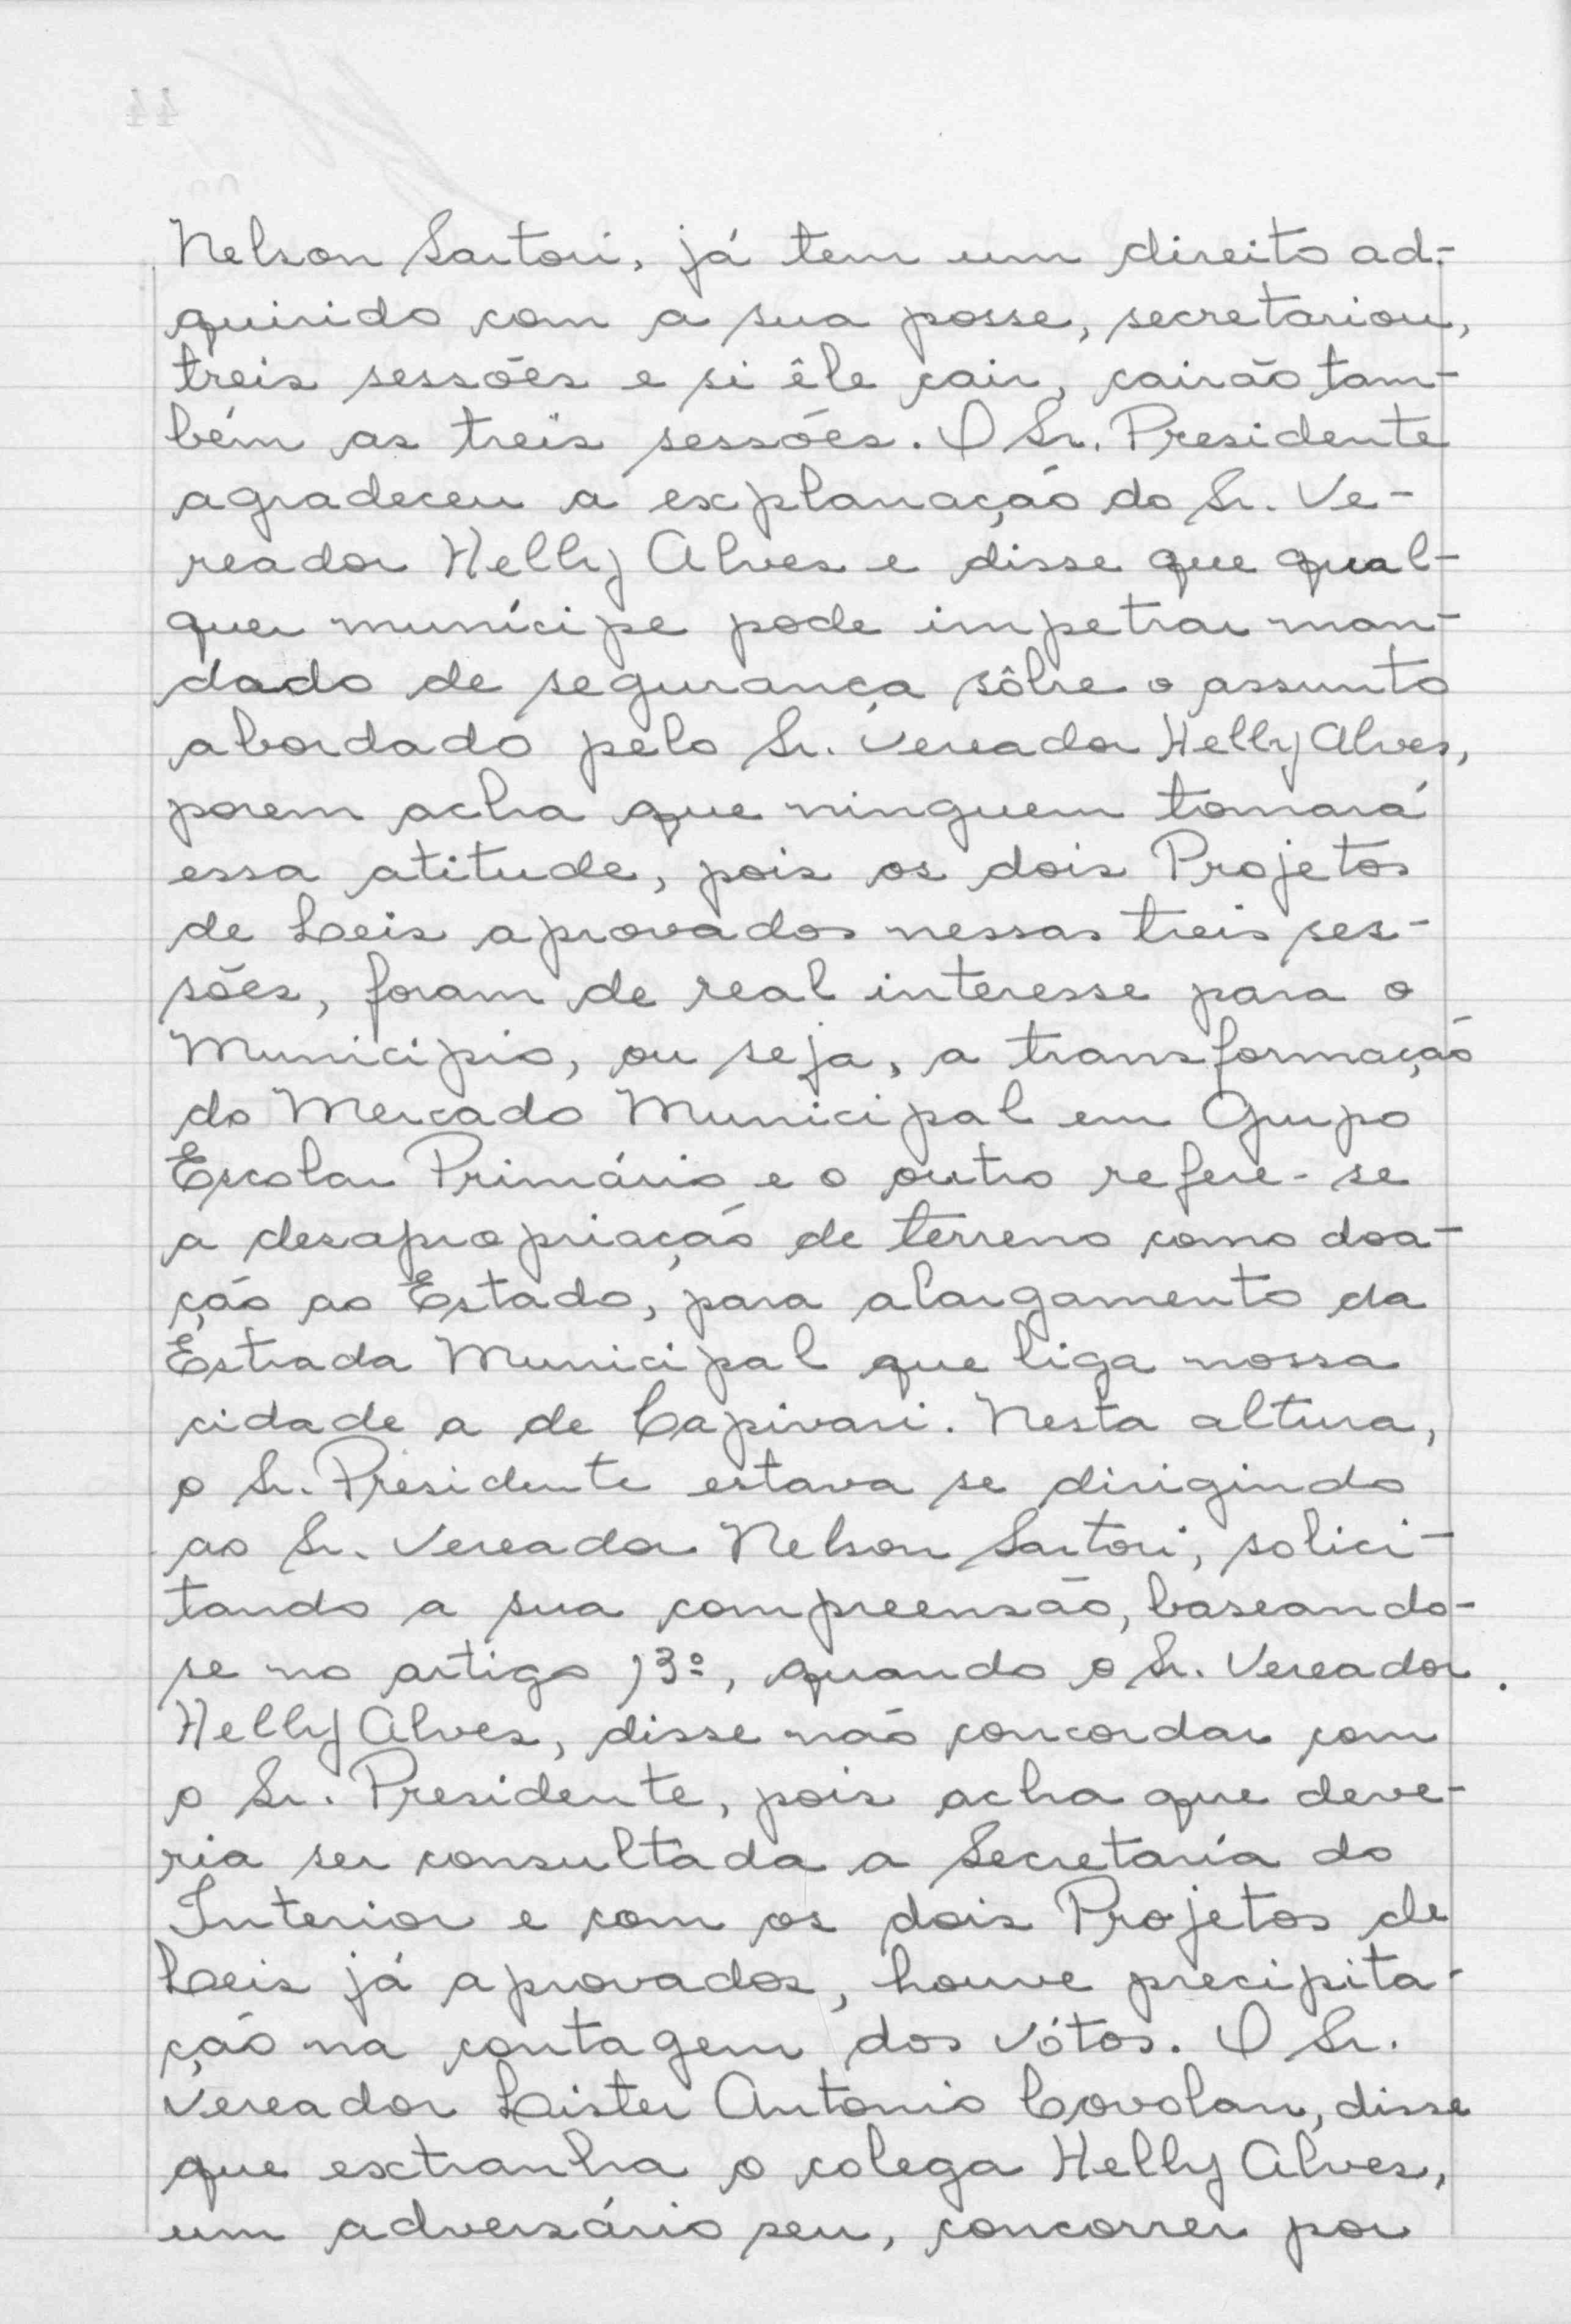 Nelson Sartori, já tem um direito ad-
quirido com a sua posse, secretariou,
treis sessões e si êle cair, cairão tam-
bém as treis sessões. O Sr. Presidente
agradeceu a explanação do Sr. Ve-
reador Helly Alves e disse que qual-
quer munícipe pode impetrar man-
dado de segurança sôbre o assunto
abordado pelo Sr. Vereador Helly Alves,
porem acha que ninguem tomará
essa atitude, pois os dois Projetos
de Leis aprovados nessas treis ses-
sões, foram de real interesse para o
Municipio, ou seja, a transformação
do Mercado Municipal em Grupo
Escolar Primário e o outro refere-se
a desapropriação de terreno como doa-
ção ao Estado, para alargamento da
Estrada Municipal que liga nossa
cidade a de Capivari. Nesta altura,
o Sr. Presidente estava se dirigindo
ao Sr. Vereador Nelson Sartori, solici-
tando a sua compreensão, baseando-
se no artigo 13º, quando o Sr. Vereador
Helly Alves, disse não concordar com
o Sr. Presidente, pois acha que deve-
ria ser consultada a Secretaria do
Interior e com os dois Projetos de
Leis já aprovados, houve precipita-
ção na contagem dos vótos. O Sr.
Vereador Lister Antonio Covolan, disse
que extranha o colega Helly Alves,
um adversário seu, concorrer por